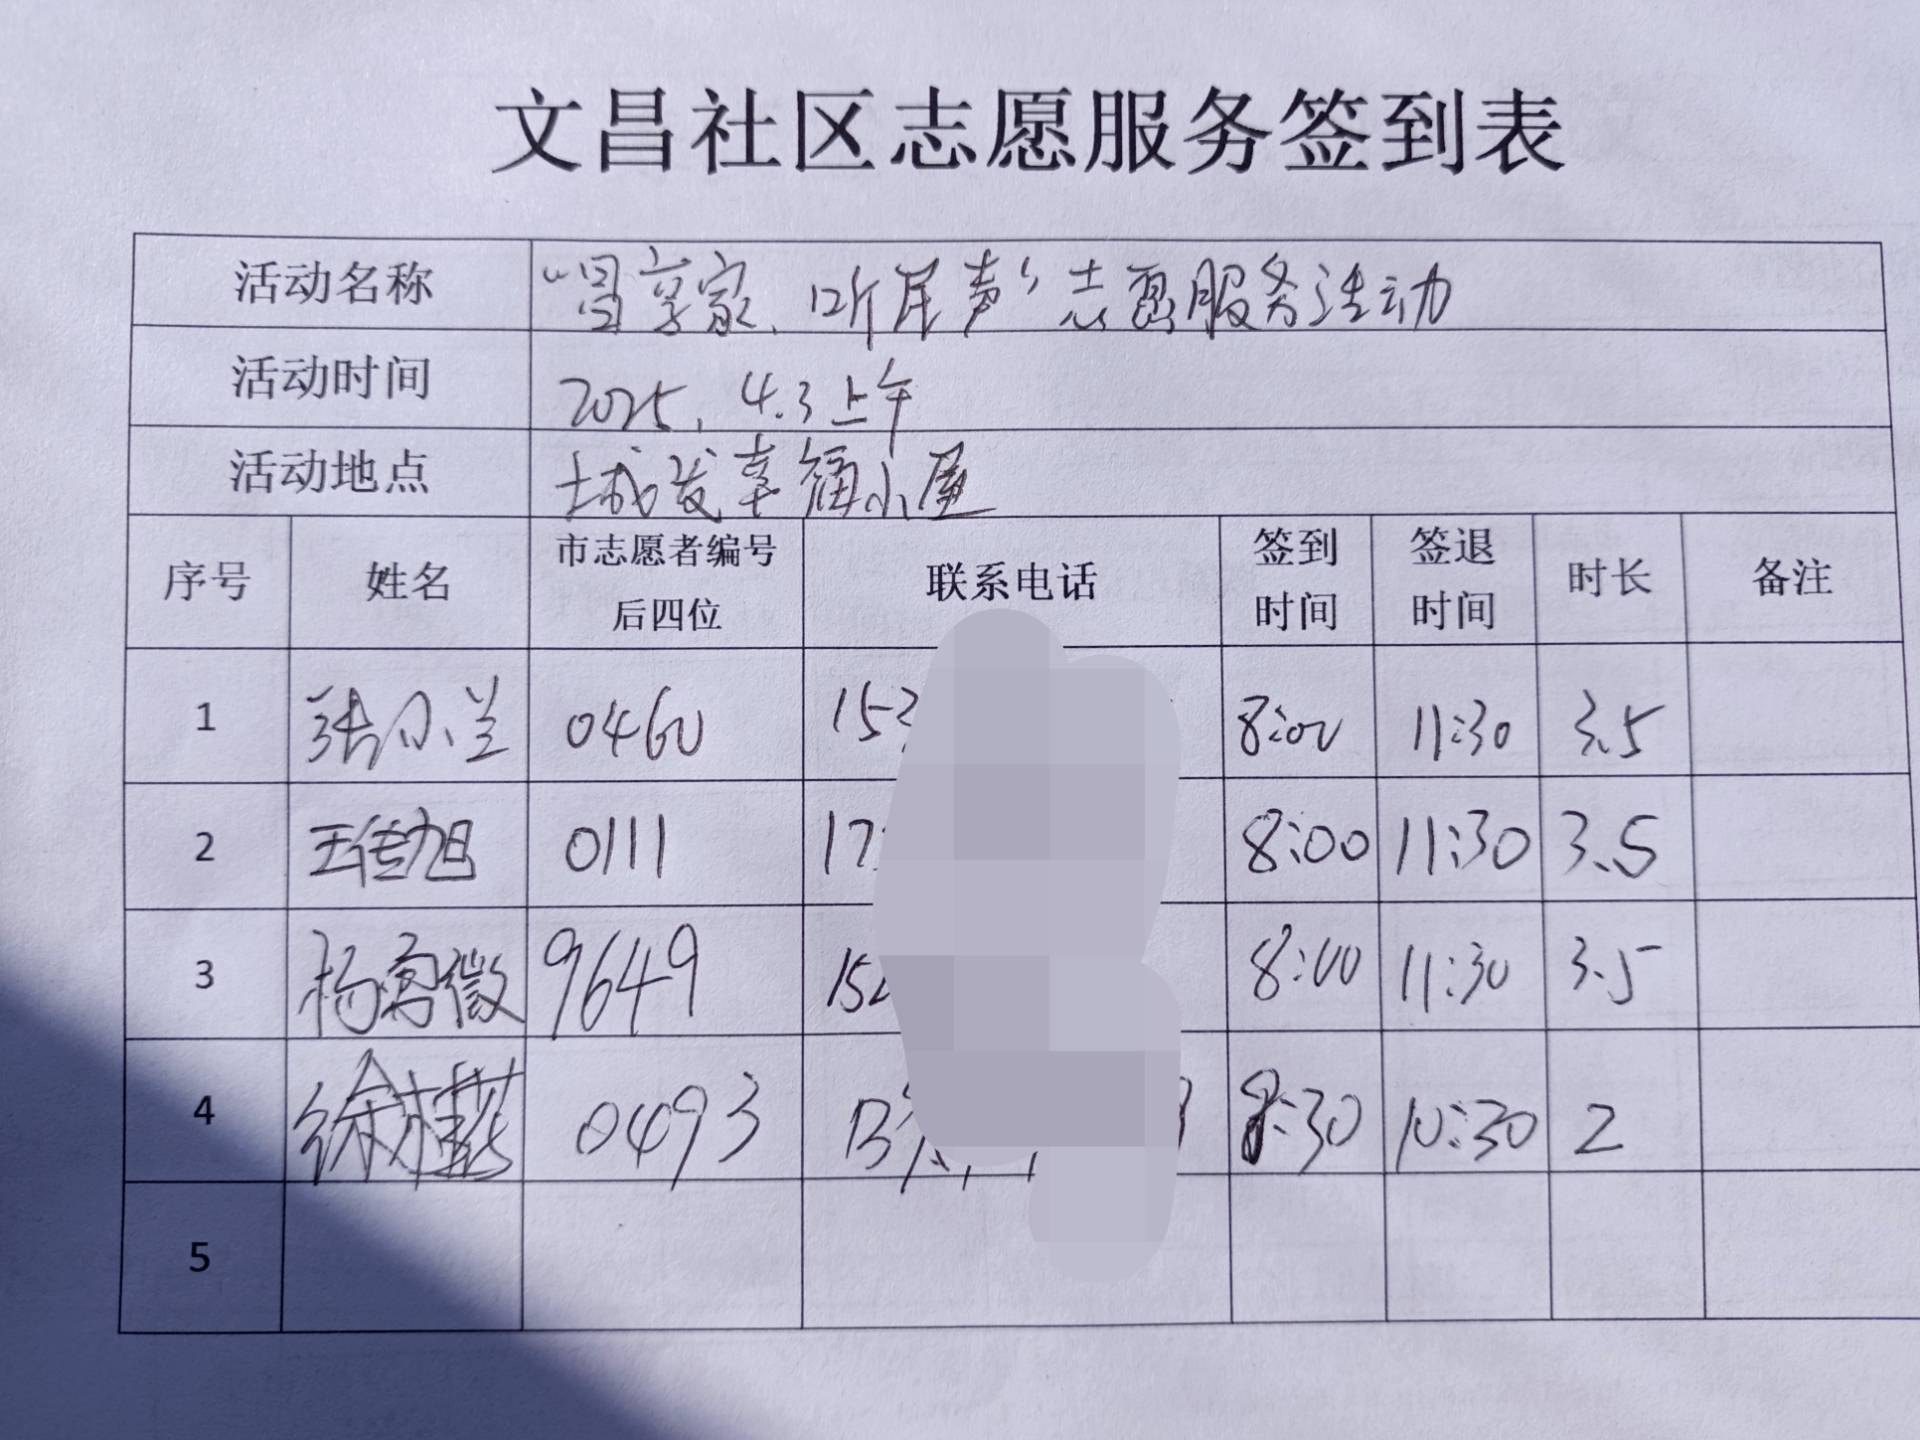 文昌社区志愿服务签到表
活动名称 “唱享家、听民声”志愿服务活动
活动时间 2025.4.3上午
活动地点 城发幸福小屋
序号 姓名 市志愿者编号后四位 联系电话 签到时间 签退时间 时长 备注
1 张小兰 0460 153 8:00 11:30 3.5
2 王传旭 0111 17 8:00 11:30 3.5
3 杨 微 9649 152 8:00 11:30 3.5
4 徐桂 0493 13 8:30 10:30 2
5